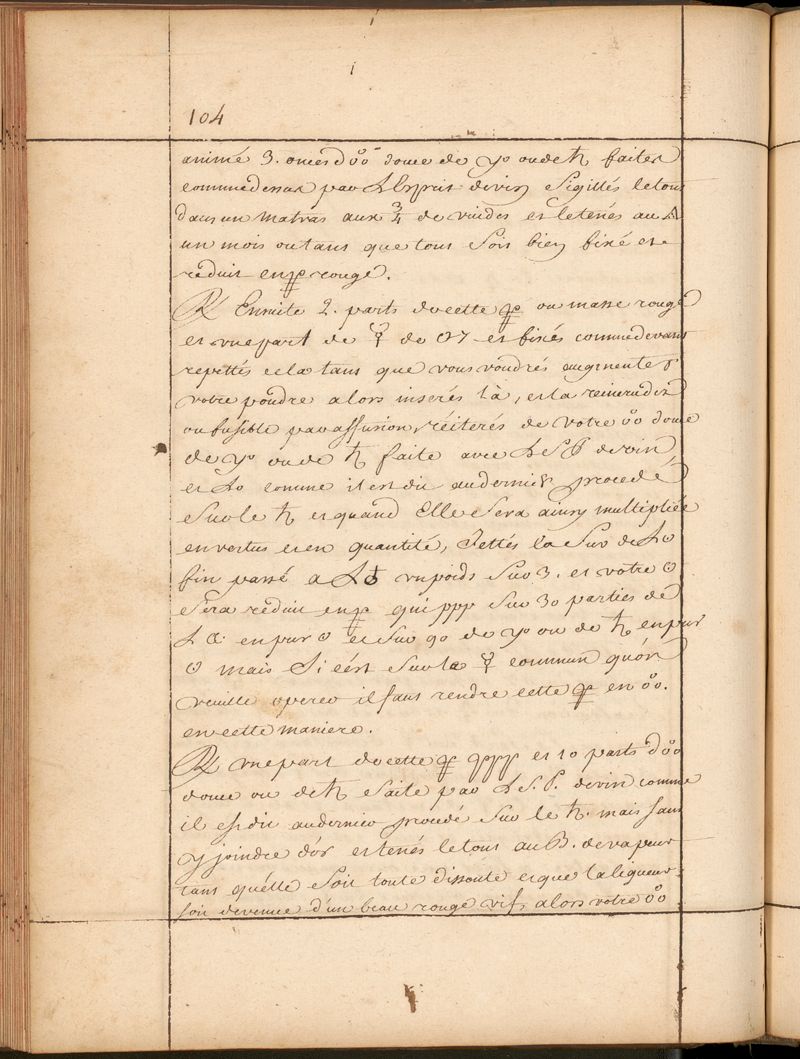 104
animé 3. onces d'o͞o douce de ♃ ou de ♄ faites
comme dessus par L'Esprit de vin Sigillés le tout
dans un matras aux ¾ de vuides et le tenés au 🜂
un mois ou tans que tout Soit bien fixé et
réduit en rouge.
℞ Ensuite 2. parts de cette ou masse rouge
et une part de ☿ de et fixés comme devant
repettés cela tans que vous voudrés augmenter
votre poudre alors inserés là, et la
ou fusible par affusion réiterés de votre o͞o douce
de ♃ ou de ♄ faite avec L S P de vin
et L☉ comme il est dit au dernier procedé
Sur le ♄ et quand Elle Sera ainsy multipliée
en vertus et en quantité, Jettés la Sur de L☉
fin passé a L♁ un poids Sur 3. et votre ☉
Sera réduit en qui ppp Sur 30 parties de
L en pur ☉ et Sur 90 de ♃ ou de ♄ en pur
☉ mais Si c'ést Sur le ☿ commun qu'on
veuille operer il faut rendre cette en o͞o.
en cette maniere.
℞ une part de cette ppp et 10 parts d'o͞o
douce ou de ♄ faite par L S. P. de vin comme
il est dit au dernier procedé Sur le ♄. mais sans
y joindre d'ór et tenés le tout au B. de vapeur
tans qu'elle Soit toute dissoute et que la liqueur
soit devenue d'un beau rouge vif, alors votre o͞o